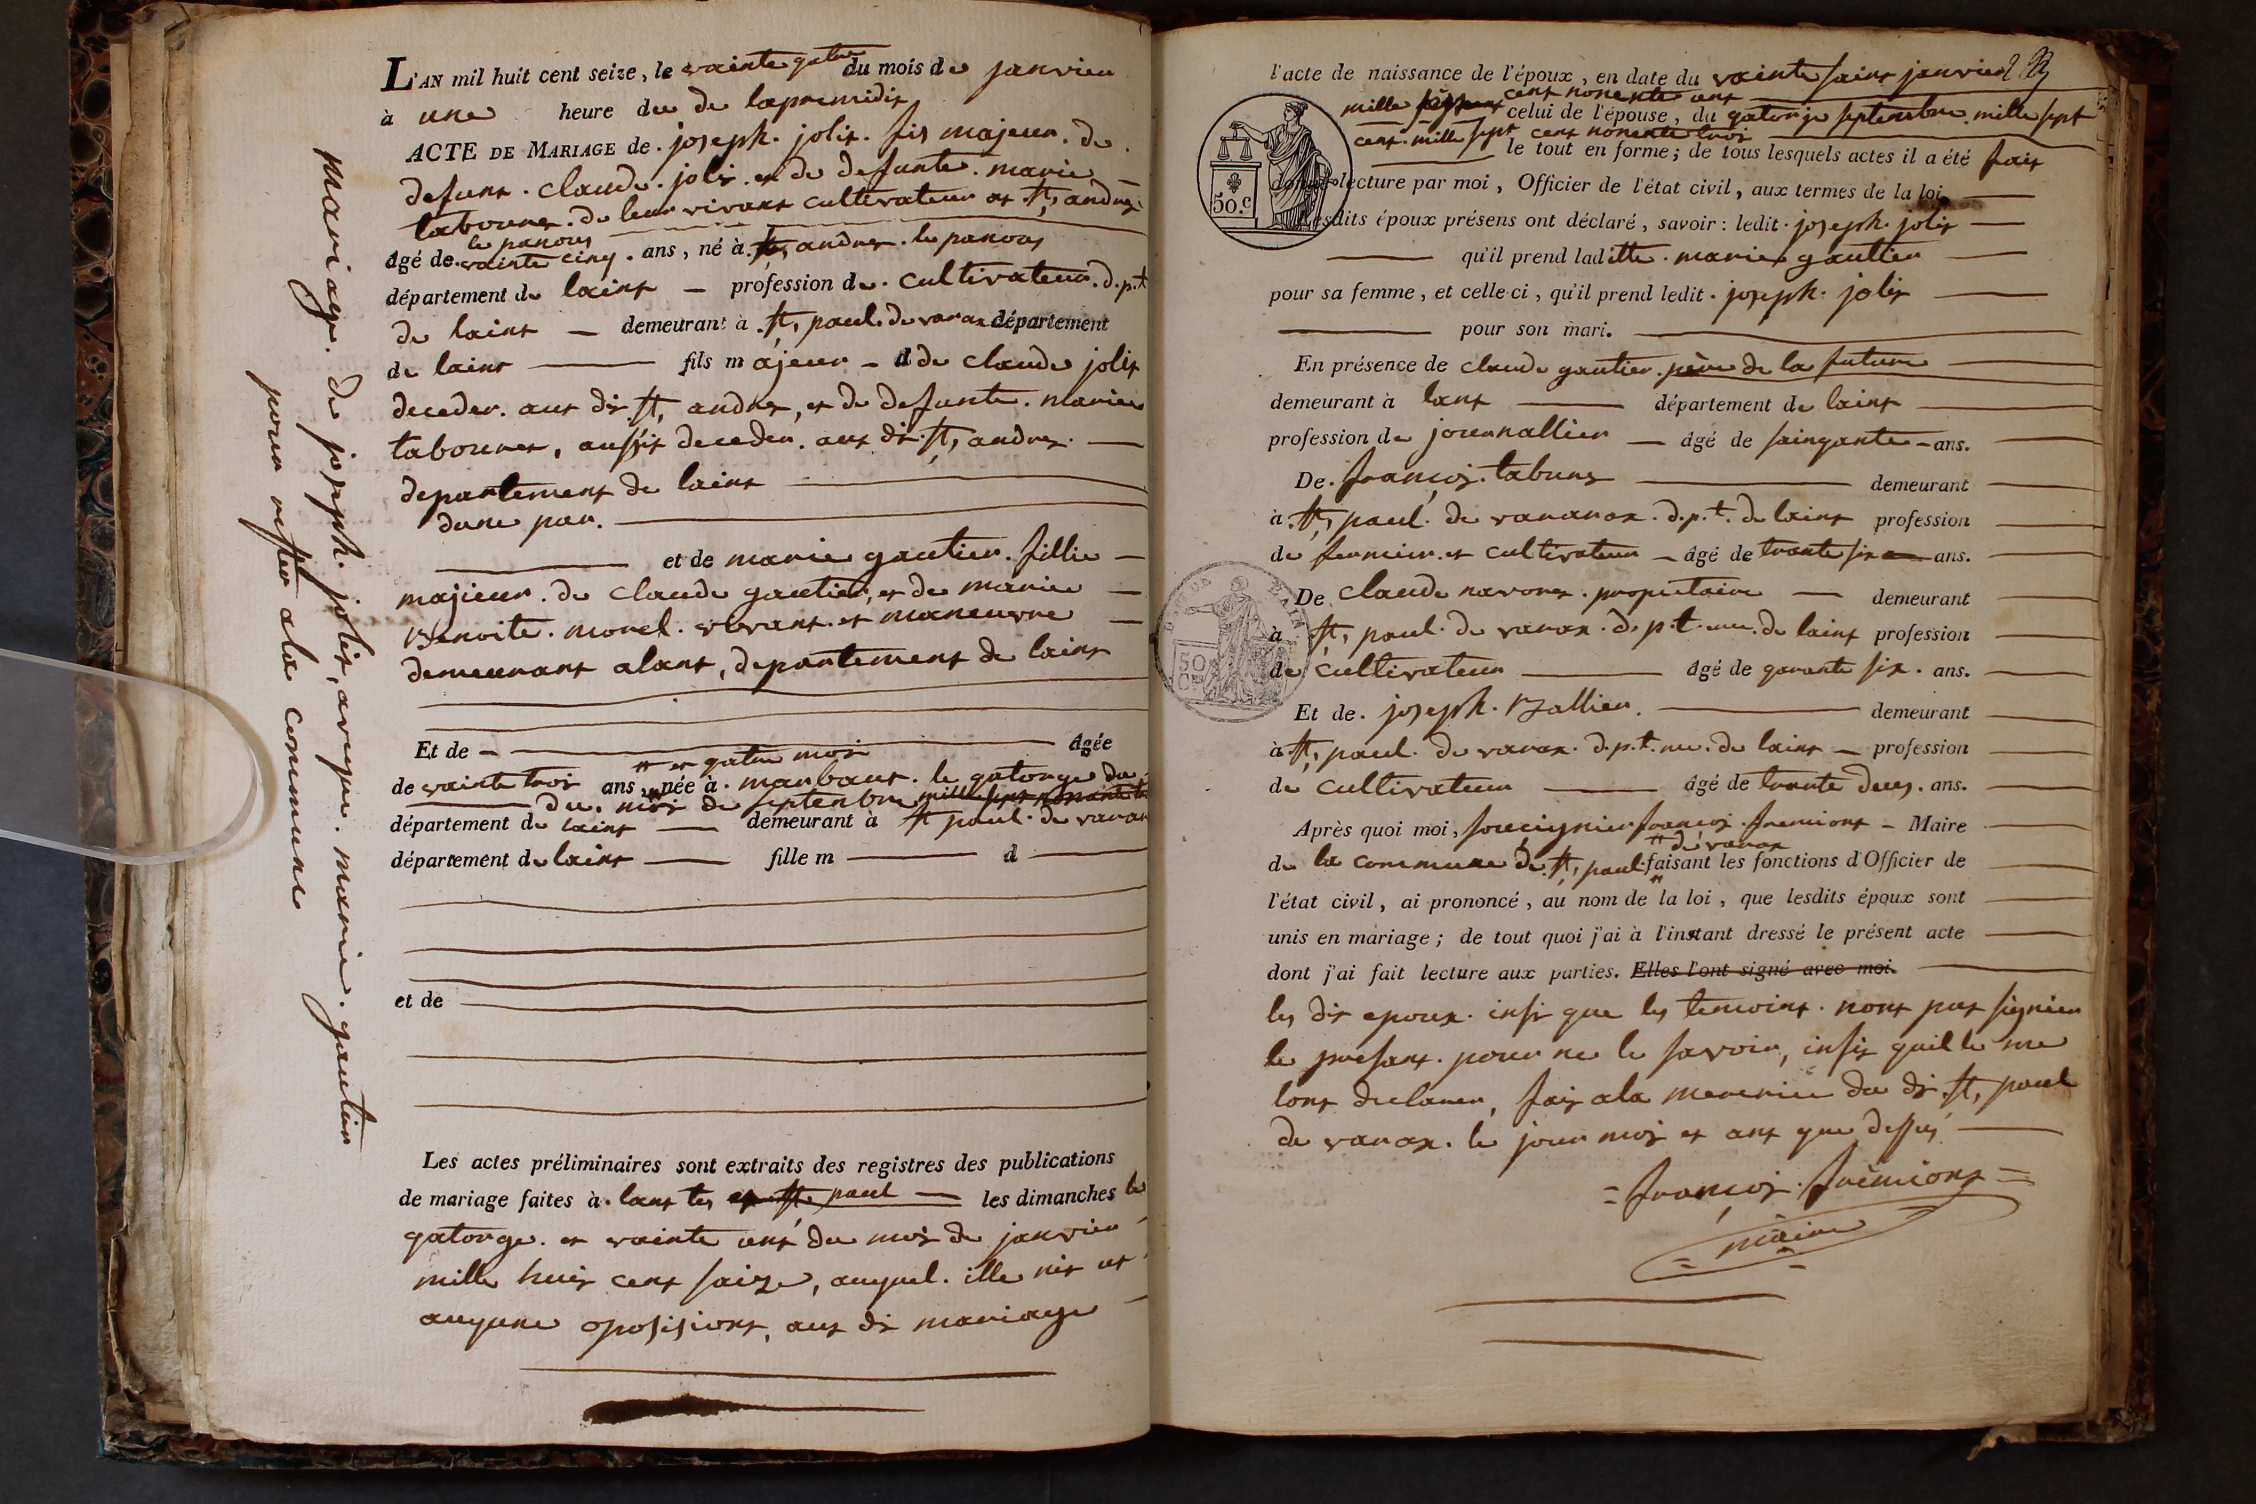 mariage. de joseph. jolit, aveque. marie. gautier
pour rester a la commune
L'AN mil huit cent seize, le vainte gatre du mois de janvier
à une heure de de lapremidit
ACTE DE MARIAGE de. joseph. jolit. fis majeur. de
defunt. claude. jolit. et de defunte. marie
tabouret. de leur vivant cultivateur at st, andrez
le panous
âgé de. vainte cinq. ans, né à. st, andrez. le panous
département de laint — profession de. cultivateur. d.p.t
de laint — demeurant à. st, paul. de varax département
de laint — fils majeur — d de claude jolit
deceder. aut dit st, andrez, et de defunte. marie
tabouret, aussit deceder. aut dit. st, andrez.
departement de laint
dune par.
et de marie gautier. fillie
majieur. de claude gautier, et de marie
Benoite. morel. vivant. et maneuvre
demeurant alant, departement de laint
Et de — âgée
# et gatre mois
de vainte trois ans # née à. marbaut. le gatorze du
du. mois de septenbre mille sept nonante t
département de laint — demeurant à st paul. de varax
département de laint — fille m — d
et de
Les actes préliminaires sont extraits des registres des publications
de mariage faites à. lant les et st, paul — les dimanches le
gatorze. et vainte unt du mois de janvier
mille huit cent saize, auquel. ille nit ut
auqune oposisiont, aut dit mariage
l'acte de naissance de l'époux, en date du vainte saint janvier
cent nonente unt
mille celui de l'épouse, du gatorze septenbre. mille sept
cent. mille sept cent nonente trois
le tout en forme; de tous lesquels actes il a été fait
50.c lecture par moi, Officier de l'état civil, aux termes de la loi.
Lesdits époux présens ont déclaré, savoir: ledit. joseph. jolit
qu'il prend laditte. marie gautier
pour sa femme, et celle-ci, qu'il prend ledit. joseph. jolit
pour son mari.
En présence de claude gautier. père de la future
demeurant à lant — département de laint
profession de journallier — âgé de saingante — ans.
De. françois. taburet — demeurant
à. st, paul. de vararax. d.p.t. de laint profession
de fermier. et cultivateur — âgé de trante six — ans.
De. claude navoret. propietaire — demeurant
à st, paul. de varax. d.p.t. mu. de laint profession
50 C.es
de cultivateur — âgé de garante six. ans.
Et de. joseph. Ballier. — demeurant
à. st, paul. de varax. d.p.t. mu. de laint — profession
de cultivateur — âgé de trante deux. ans.
Après quoi moi, souciynier françois. fremiont — Maire
# de varax
de la commune de. st, paul. # faisant les fonctions d'Officier de
l'état civil, ai prononcé, au nom de la loi, que lesdits époux sont
unis en mariage; de tout quoi j'ai à l'instant dressé le présent acte
dont j'ai fait lecture aux parties. Elles l'ont signé avec moi.
les dit epoux. insi que les temoint. nont pas signier
le presant. pour ne le savoir, insit quille me
lont declarer, fait ala mererie du dit. st, paul
de varax. le jour mois et ant que dessus
= françois. fremiont =
= maire =